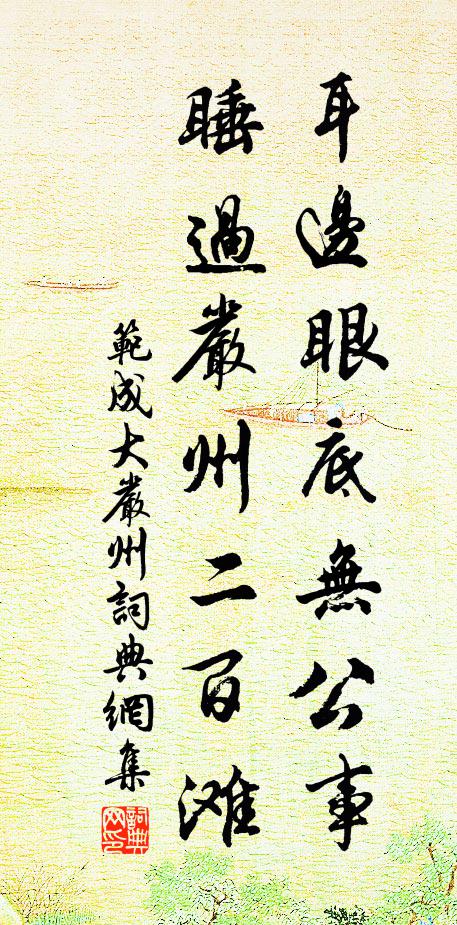 耳邊眼底無公事
睡過嚴州二百滩
範成大嚴州詞典網集
詞典网印